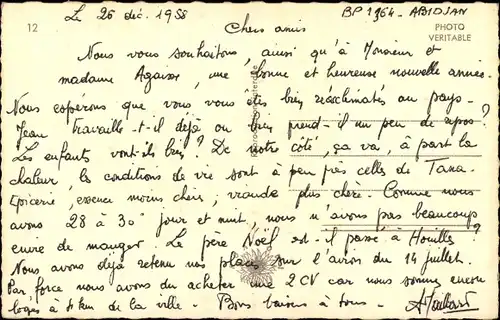 Le 26 déc. 1958
BP 1364 - ABIDJAN
12
Chers amis
PHOTO
VERITABLE
Nous vous souhaitons, ainsi qu'à Monsieur et
madame, une bonne et heureuse nouvelle année.
Nous espérons que vous vous êtes bien réacclimatés au pays -
Jean travaille-t-il déjà ou bien prend-il un peu de repos?
Les enfants vont-ils bien? De notre côté, ça va, à part la
chaleur, les conditions de vie sont à peu près celles de Tana.
Epicerie, essence moins chers; viande plus chère. Comme nous
avons 28 à 30° jour et nuit, nous n'avons pas beaucoup
envie de manger. Le père Noël est-il passé à Houilles?
Nous avons déjà retenu nos places sur l'avion du 14 juillet.
Par force nous avons du acheter une 2 CV car nous sommes encore
logés à km de la ville - Bons baisers à tous -